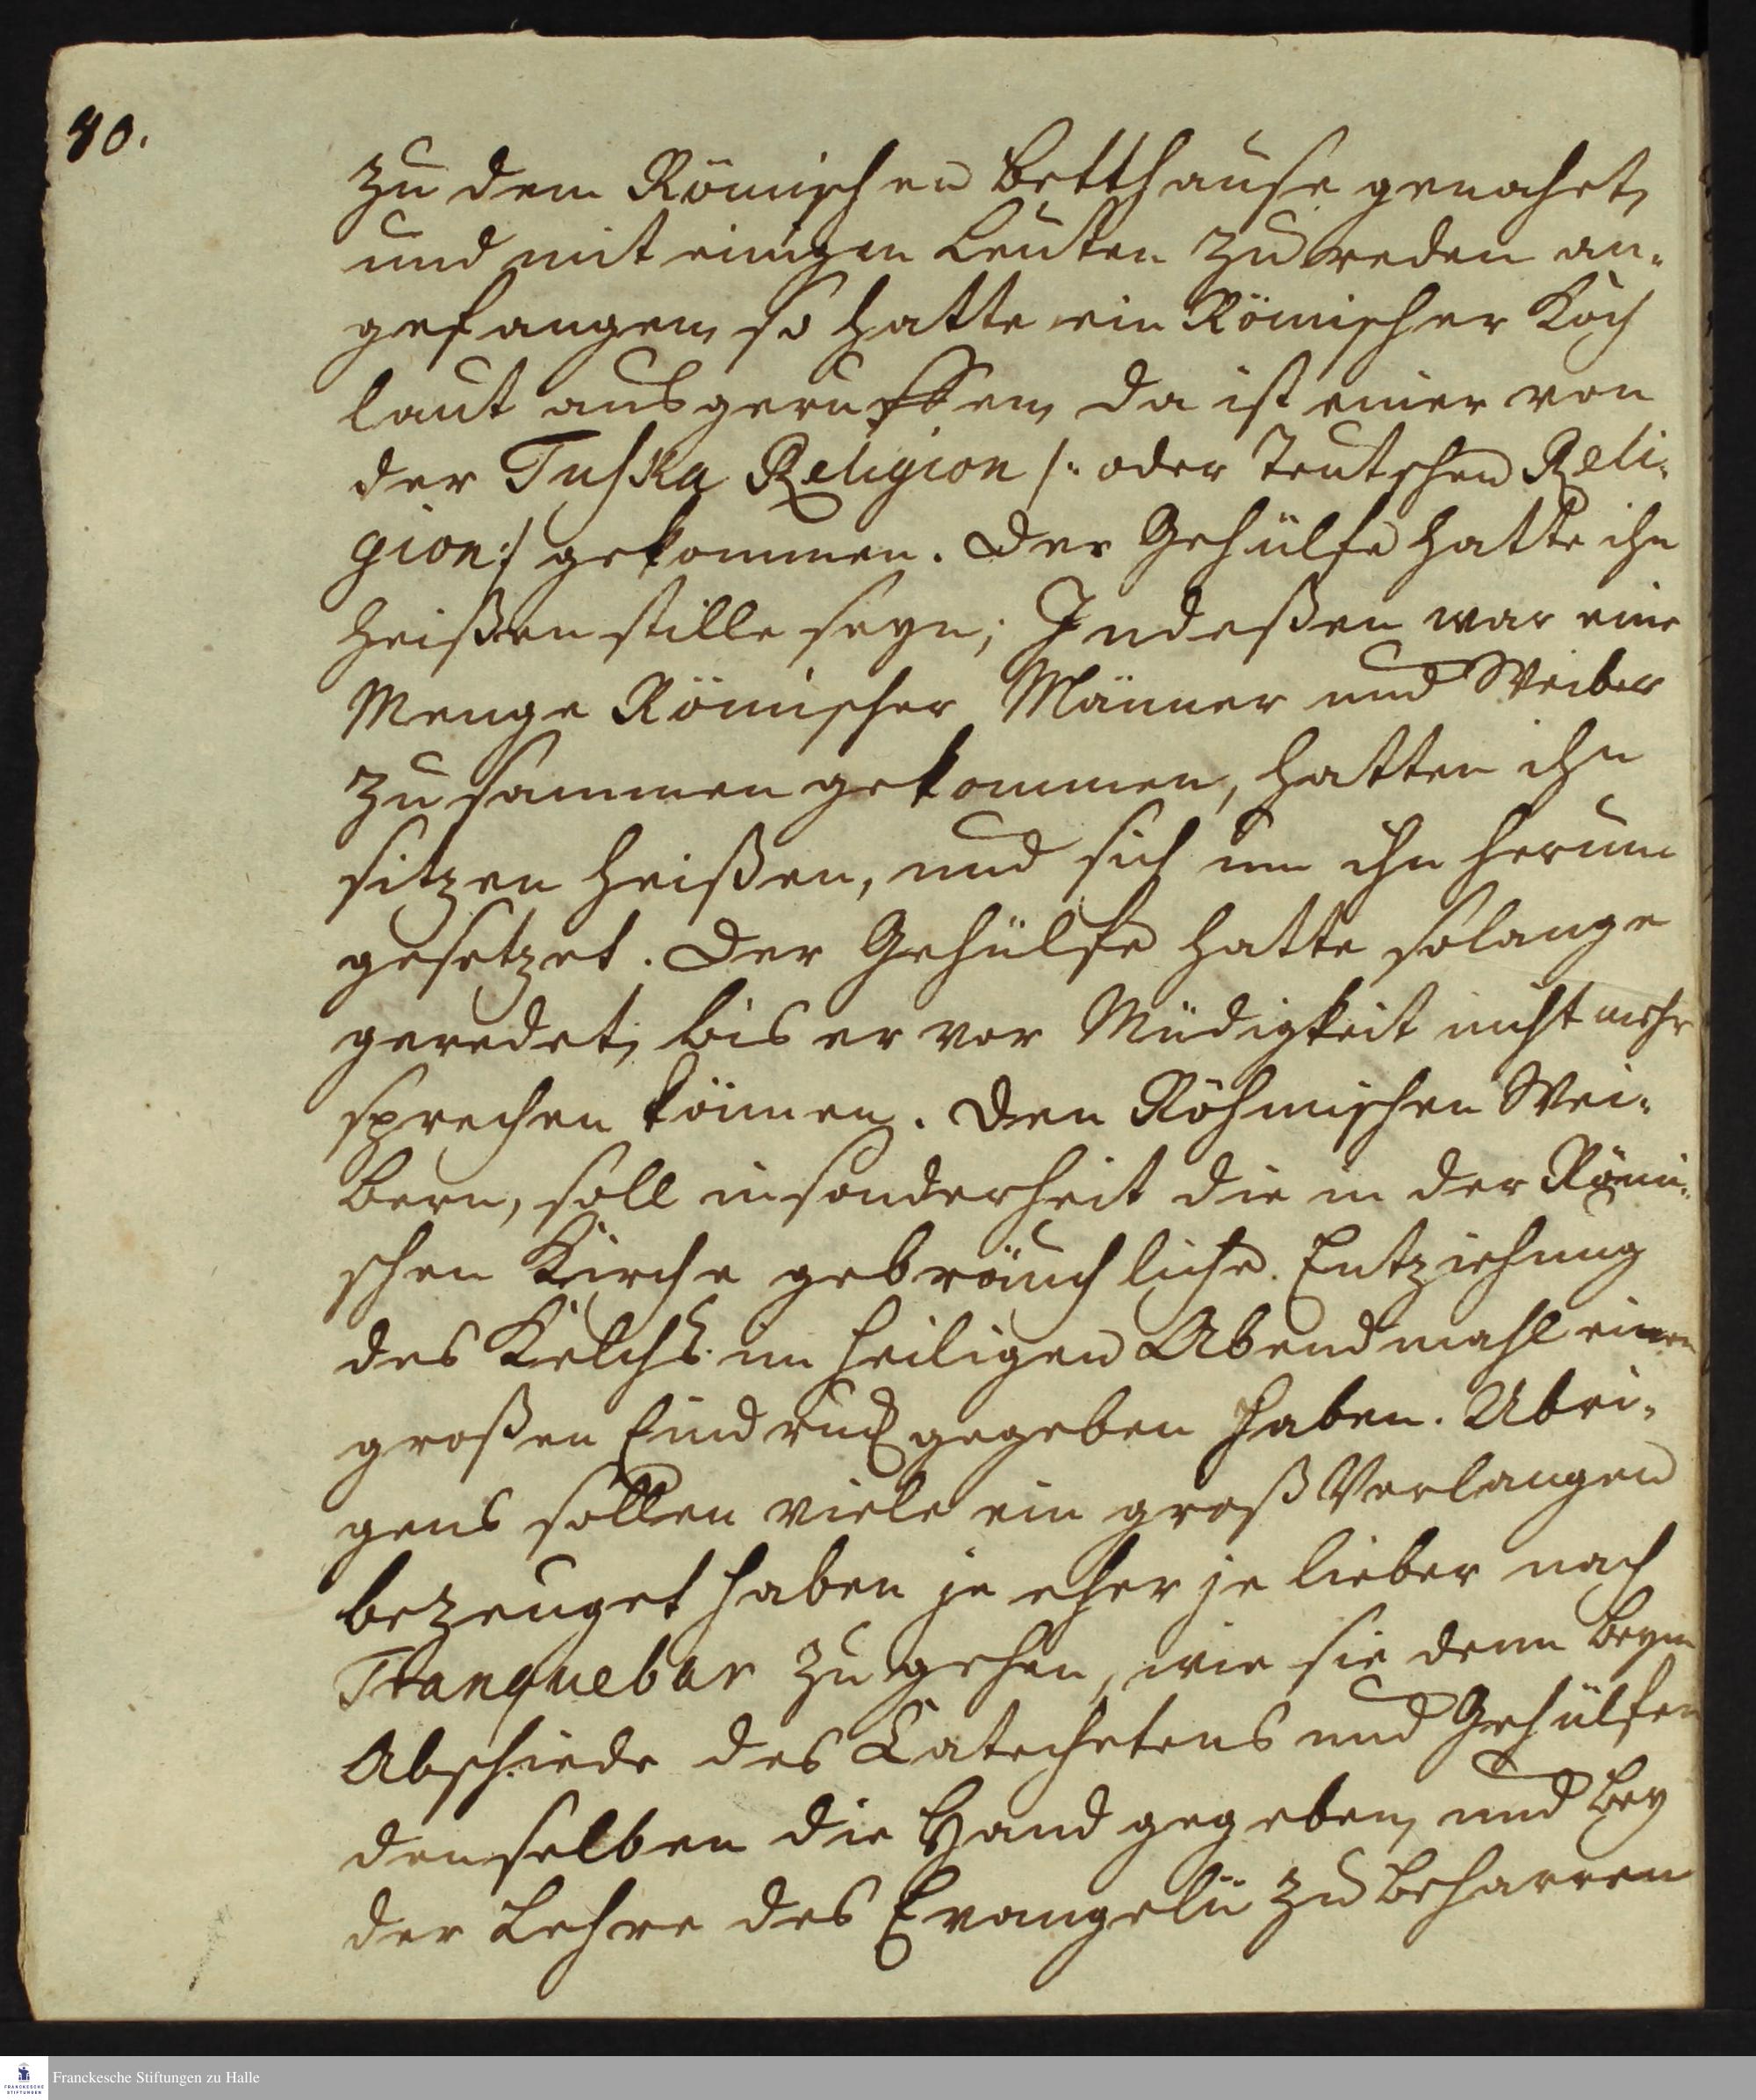 80.
zu dem Römischen Betthause genahet,
und mit einigen Leuten zu reden an-
gefangen, so hatte ein Römischer Koch
laut ausgeruffen, da ist einer von
der Tuska Religion /: oder Teutschen Reli-
gion :/ gekommen. Der Gehülfe hatte ihn
heißen stille seyn; Indeßen war eine
Menge Römischer Männer und Weiber
zusammen gekommen, hatten ihn
sitzen heißen, und sich um ihn herum
gesetzet. Der Gehülfe hatte solange
geredet, bis er vor Müdigkeit nicht mehr
sprechen können. Den Röhmischen Wei-
bern, soll insonderheit die in der Römi-
schen Kirche gebräuchliche Entziehung
des Kelchs im heiligen Abendmahl einen
großen Eindruck gegeben haben. Ubri-
gens sollen viele ein groß Verlangen
bezeuget haben je eher je lieber nach
Tranquebar zu gehen, wie sie denn beym
Abschiede des Catechetens und Gehülfen
denselben die Hand gegeben, und bey
der Lehre des Evangelii zu beharren
Franckesche Stiftungen zu Halle
FRANCKESCHE
STIFTUNGEN